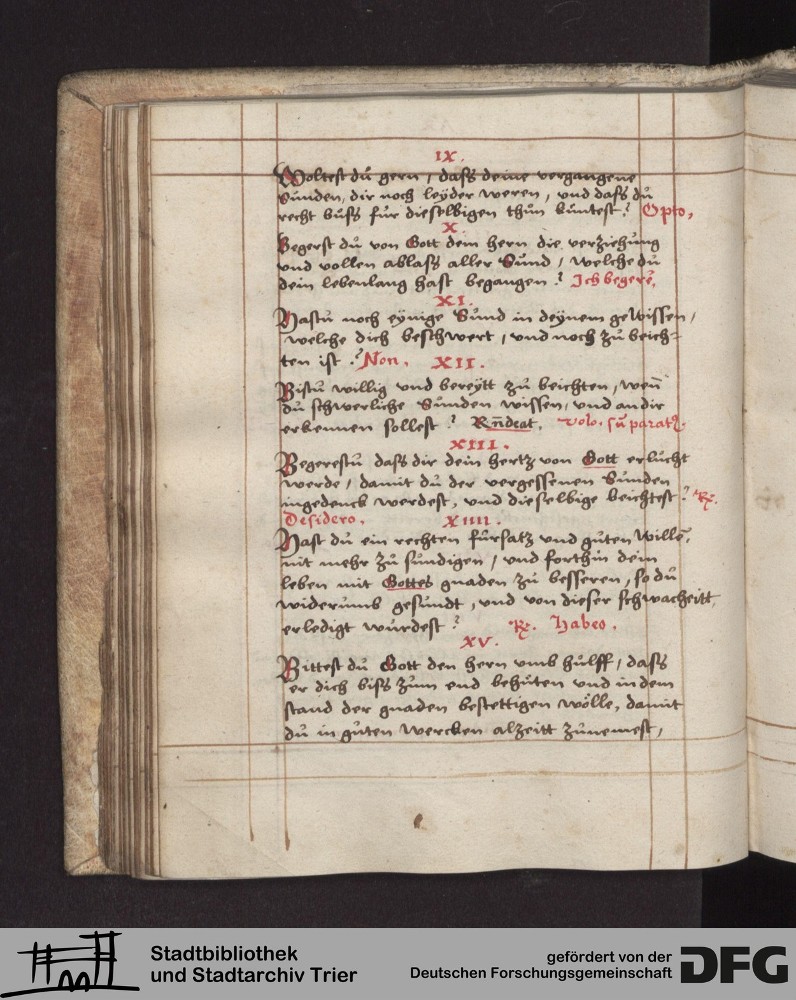 IX.
Woltest dů gern, dass deine vergangene
Sůnden, dir noch leÿder weren, vnd dass dů
recht buss für dieselbigen thůn kůntest? Opto,
X.
Begerst dů von Gott dem hern die verziehůng
vnd vollen ablass aller Sůnd, welche dů
dein lebenlang hast begangen? Ich begere,
XI.
Hastů noch eÿnige Sůnd in deÿnem gewissen,
welche dich beschwert, vnd noch zů beich-
ten ist? Non. XII.
Bistů willig vnd bereÿtt zů beichten, wen̄
dů schwerliche Sůnden wissen, vnd an dir
erkennen sollest? Rn̄deat. volo. sū parat9.
XIII.
Begerestů dass dir dein hertz von Gott erlůcht
werde, damit dů der vergessenen Sůnden
ingedenck werdest, vnd dieselbige beichtest? Rx.
Desidero. XIIII.
Hast dů ein rechten fürsatz vnd gůten Willē,
nit mehr zů sůndigen, vnd forthin dein
leben mit Gottes gnaden zů besseren, so dů
widerumb gesůndt, vnd von dieser schwacheitt
erledigt wůrdest? Rx. Habeo.
XV.
Bittest dů Gott den hern vmb hůlff, dass
er dich biss zům end behůten vnd in dem
stand der gnaden bestettigen wölle, damit
dů in gůten wercken alzeitt zůnemest,
Stadtbibliothek
und Stadtarchiv Trier
gefördert von der
Deutschen Forschungsgemeinschaft
DFG